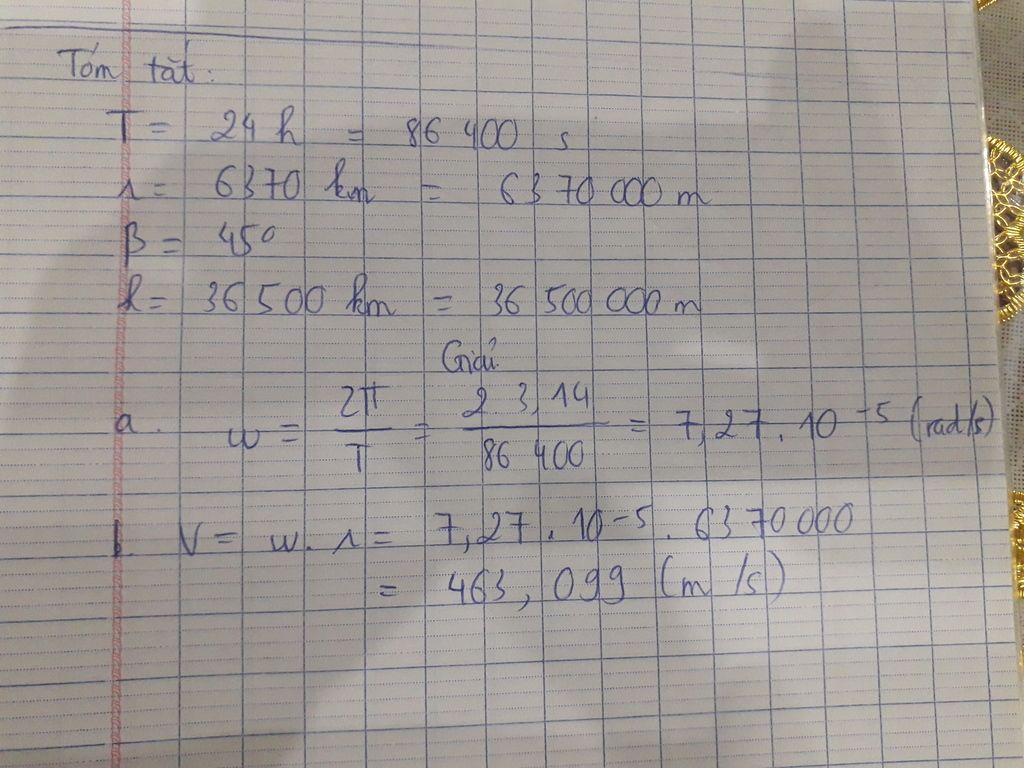 Tóm tắt:
T = 24 h = 86 400 s
r = 6370 km = 6370 000 m
β = 45°
h = 36 500 km = 36 500 000 m
Giải
a. ω = 2π / T = 2 3,14 / 86 400 = 7,27 . 10⁻⁵ (rad/s)
b. V = ω . r = 7,27 . 10⁻⁵ . 6370 000
= 463, 099 (m /s)